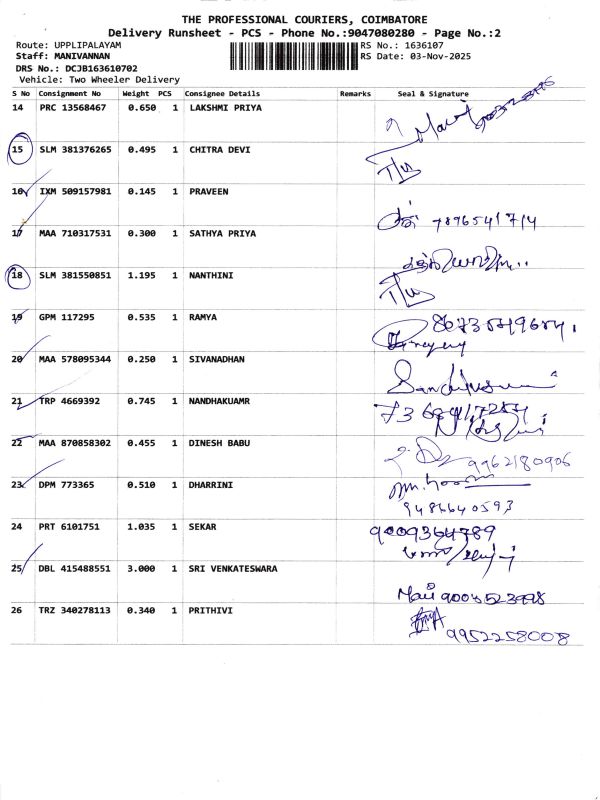 THE PROFESSIONAL COURIERS, COIMBATORE
Delivery Runsheet - PCS - Phone No.:9047080280 - Page No.:2
Route: UPPLIPALAYAM
RS No.: 1636107
Staff: MANIVANNAN
RS Date: 03-Nov-2025
DRS No.: DCJB163610702
Vehicle: Two Wheeler Delivery
S No Consignment No Weight PCS Consignee Details Remarks Seal & Signature
14 PRC 13568467 0.650 1 LAKSHMI PRIYA
15 SLM 381376265 0.495 1 CHITRA DEVI
16 IXM 509157981 0.145 1 PRAVEEN
7896541714
17 MAA 710317531 0.300 1 SATHYA PRIYA
18 SLM 381550851 1.195 1 NANTHINI
19 GPM 117295 0.535 1 RAMYA
20 MAA 578095344 0.250 1 SIVANADHAN
21 TRP 4669392 0.745 1 NANDHAKUAMR
22 MAA 870858302 0.455 1 DINESH BABU
9962180906
23 DPM 773365 0.510 1 DHARRINI
9486640593
24 PRT 6101751 1.035 1 SEKAR
9009364789
25 DBL 415488551 3.000 1 SRI VENKATESWARA
26 TRZ 340278113 0.340 1 PRITHIVI
9952258008